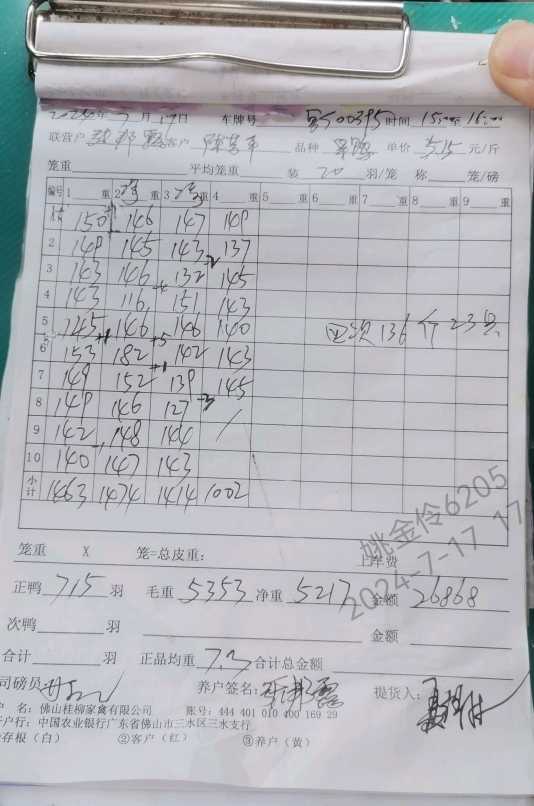 2024年7月17日 车牌号 时间 15:00至16:00
联营户 客户 品种 单价 5.15 元/斤
笼重 平均笼重 装 20 羽/笼 称 笼/磅
编号 1 重 2 重 3 重 4 重 5 重 6 重 7 重 8 重 9 重
150 146 147 149
2 149 145 143 137
3 143 146 132 145
4 143 116 151 143
5 145 146 146 140 四次136斤23只
6 153 182 142 143
7 149 152 139 145
8 149 146 127 /
9 142 148 144
10 140 147 143
小计 1463 1474 1414 1002
姚金伶6205
2024-7-17 17
笼重 X 笼=总皮重: 上车费
正鸭 715 羽 毛重 5353 净重 5217 金额 26868
次鸭 羽 金额
合计 羽 正品均重 7.3 合计总金额
司磅员 养户签名: 提货人:
户 名: 佛山桂柳家禽有限公司 账号: 444 401 010 400 169 29
开户行: 中国农业银行广东省佛山市三水区三水支行
存根（白） ②客户（红） ③养户（黄）